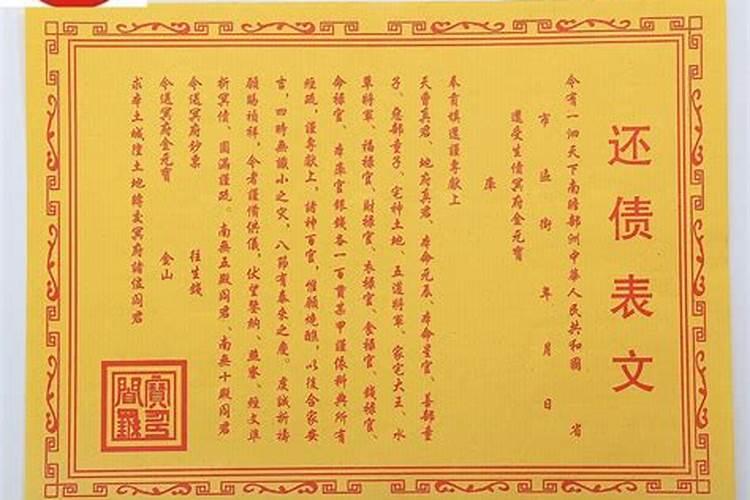 还债表文
今有一泗天下南瞻部洲中華人民共和國 省
市 區 街 年 月 日
還受生債冥府金元寶
庫
奉育填還謹專獻上
天曹真君、地府真君、本命元辰、本命星官、善部童
子、惡部童子、宅神土地、五道將軍、家宅大王、水
草將軍、福祿官、財祿官、衣祿官、食祿官、錢祿官、
命祿官、本庫官銀錢各一百貫某甲謹依科典所有
經疏，謹專獻上，諸神百官，惟願燒醮，以後合家安
言，四時無讖小之灾，八節有泰來之慶。虔誠祈禱
願賜禎祥，令者謹備供儀，伏望鑒納、照察、經文準
折冥債、圓滿謹疏。南無五殿阎君、南無十殿阎君
令送冥府鈔票 往生錢
令送冥府金元寶 金山
求本土城隍土地轉交冥府諸位阎君